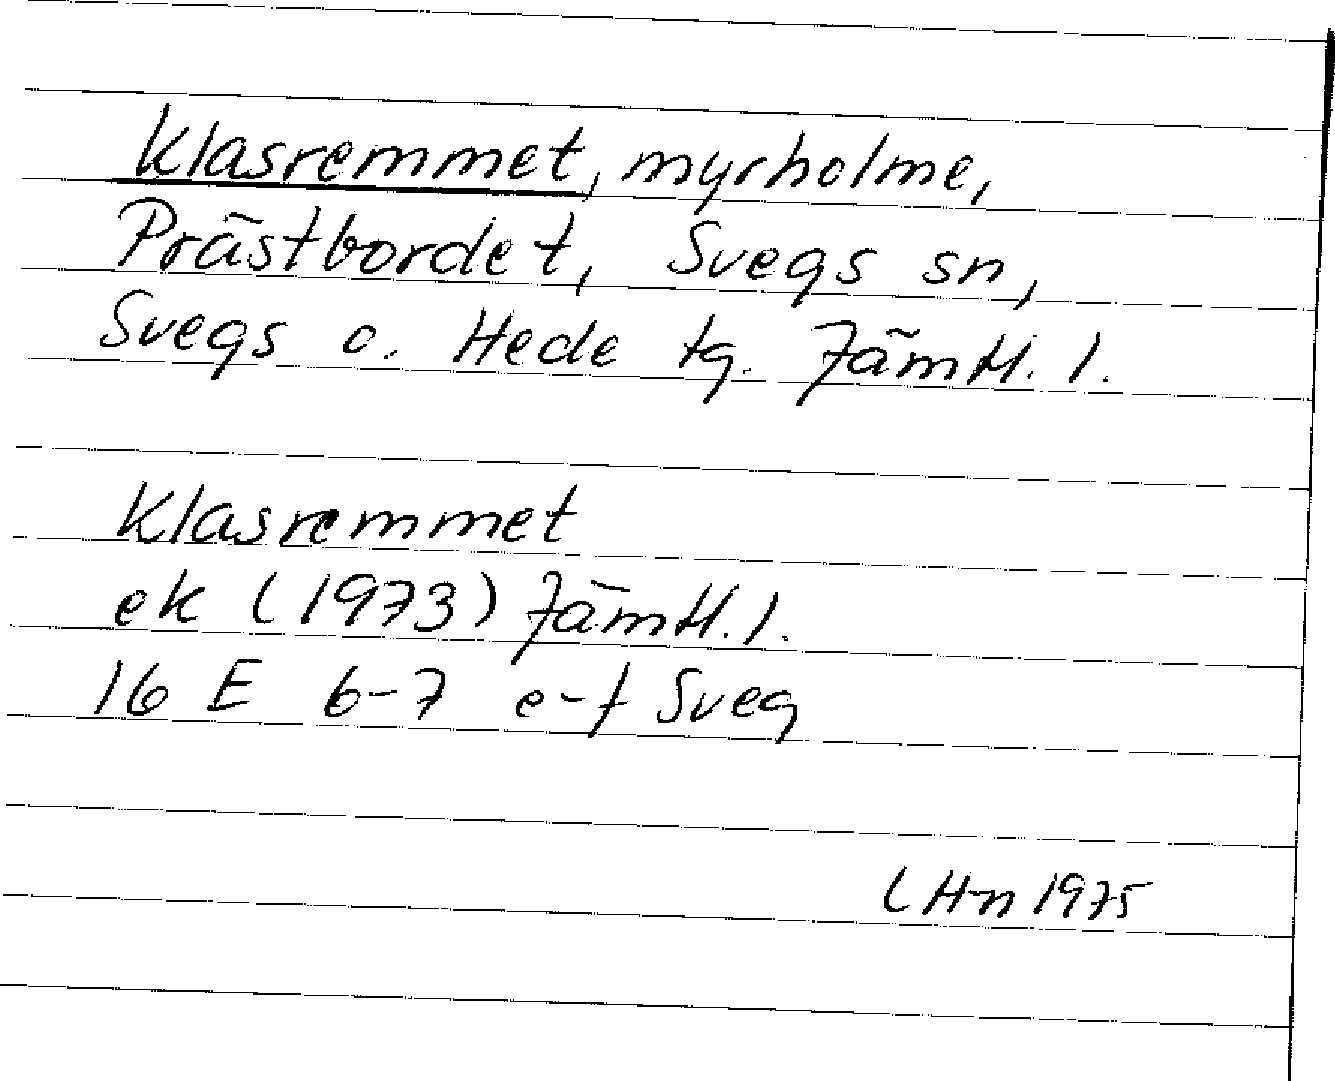 Klasremmet, myrholme,
Prästbordet, Svegs sn,
Svegs o. Hede tg. Jämtl. l.
Klasremmet
ek (1973) Jämtl. l.
16 E 6-7 e-f Sveg
LH-n 1975